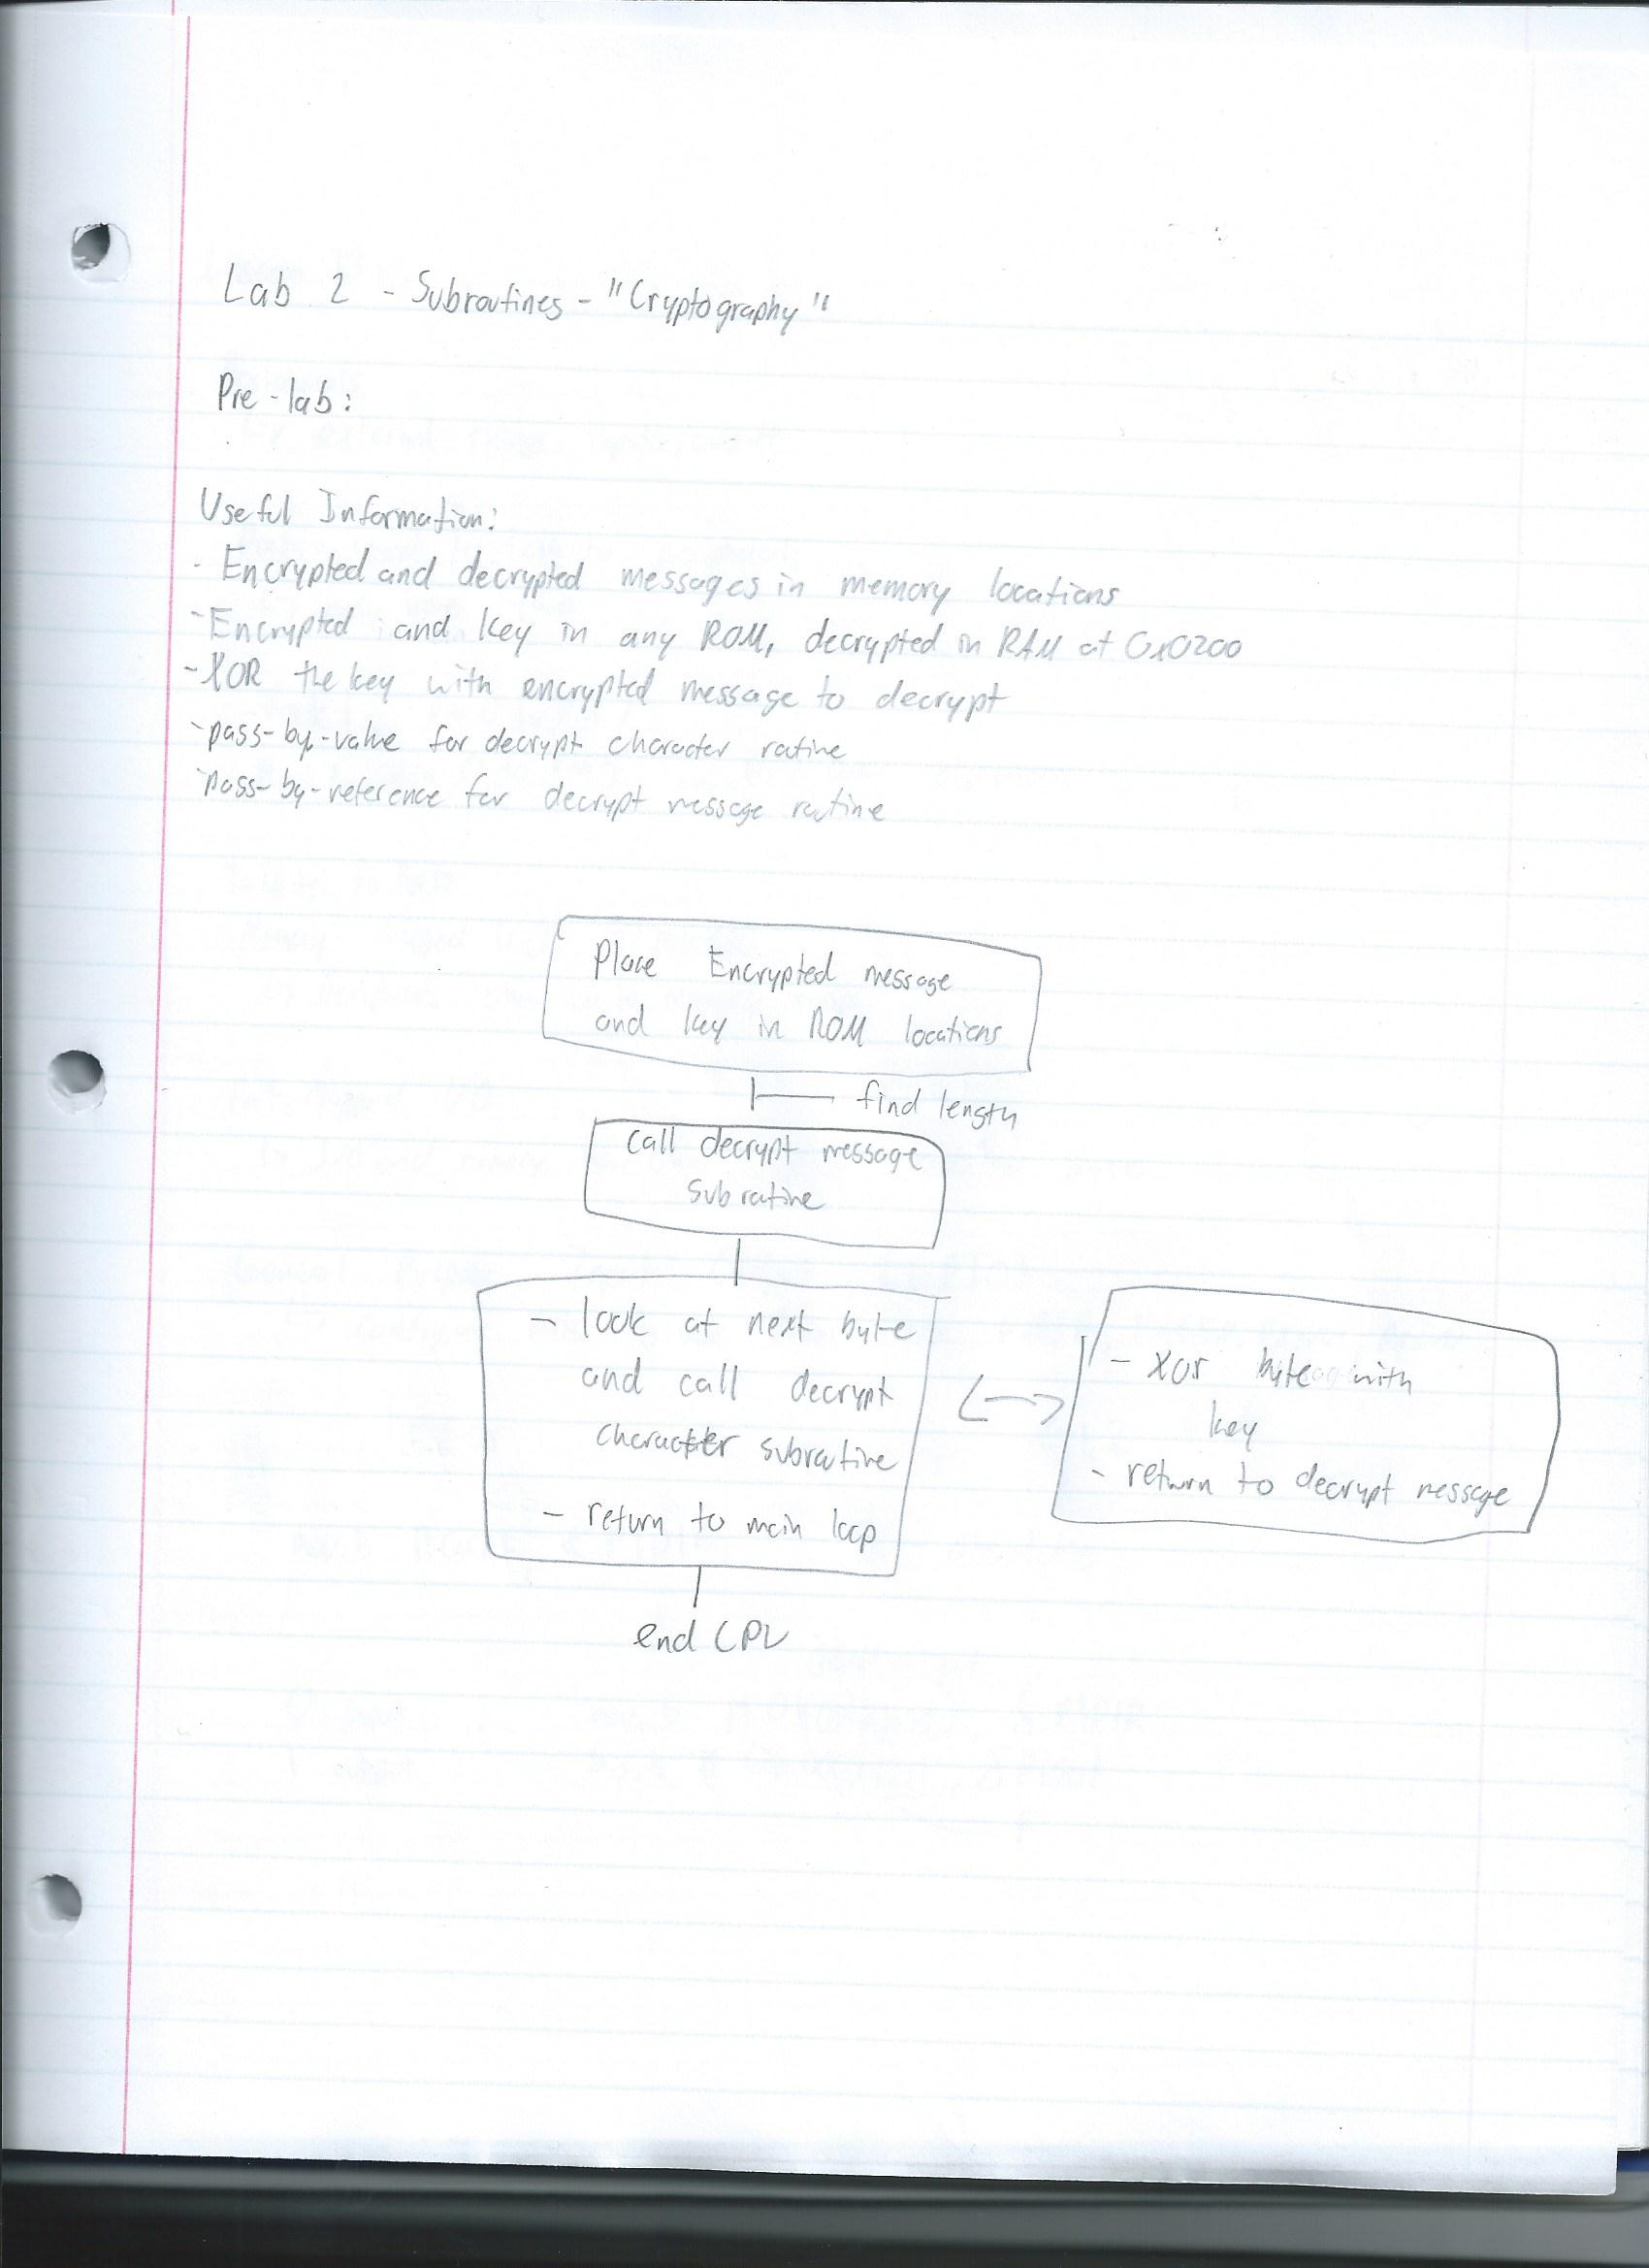 Lab 2 - Subroutines - "Cryptography"
Pre-lab:
Useful Information:
- Encrypted and decrypted messages in memory locations
- Encrypted and key in any ROM, decrypted in RAM at 0x0200
- XOR the key with encrypted message to decrypt
- pass-by-value for decrypt character routine
- pass-by-reference for decrypt message routine
Place Encrypted message
and key in ROM locations
find length
call decrypt message
subroutine
- look at next byte
and call decrypt
character subroutine
- return to main loop
- XOR byte with
key
- return to decrypt message
end CPU